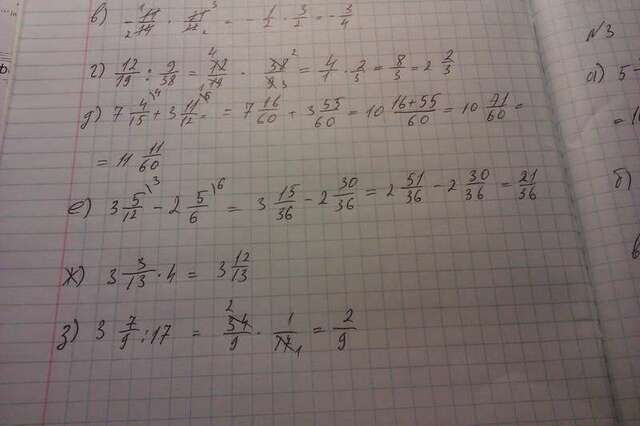 в) - 11/14 · 21/22 = - 1/2 · 3/2 = - 3/4
№3
г) 12/19 : 9/38 = 12/19 · 38/9 = 4/1 · 2/3 = 8/3 = 2 2/3
а) 5
д) 7 4/15 + 3 11/12 = 7 16/60 + 3 55/60 = 10 (16+55)/60 = 10 71/60 =
= 11 11/60
е) 3 5/12 - 2 5/6 = 3 15/36 - 2 30/36 = 2 51/36 - 2 30/36 = 21/36
б)
ж) 3 3/13 · 4 = 3 12/13
з) 3 7/9 : 17 = 34/9 · 1/17 = 2/9